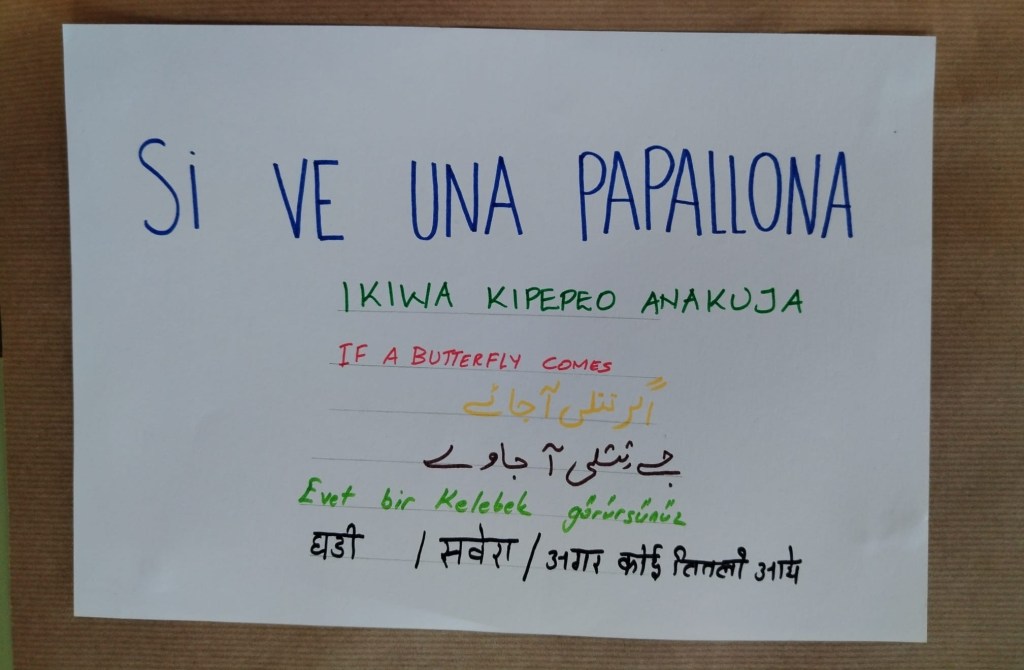 Si VE UNA PAPALLONA
IKIWA KIPEPEO ANAKUJA
IF A BUTTERFLY COMES
اگر تتلی آ جائے
جے تتلی آ جاوے
Evet bir Kelebek görürsünüz
घडी / सवेरा / अगर कोई तितली आये